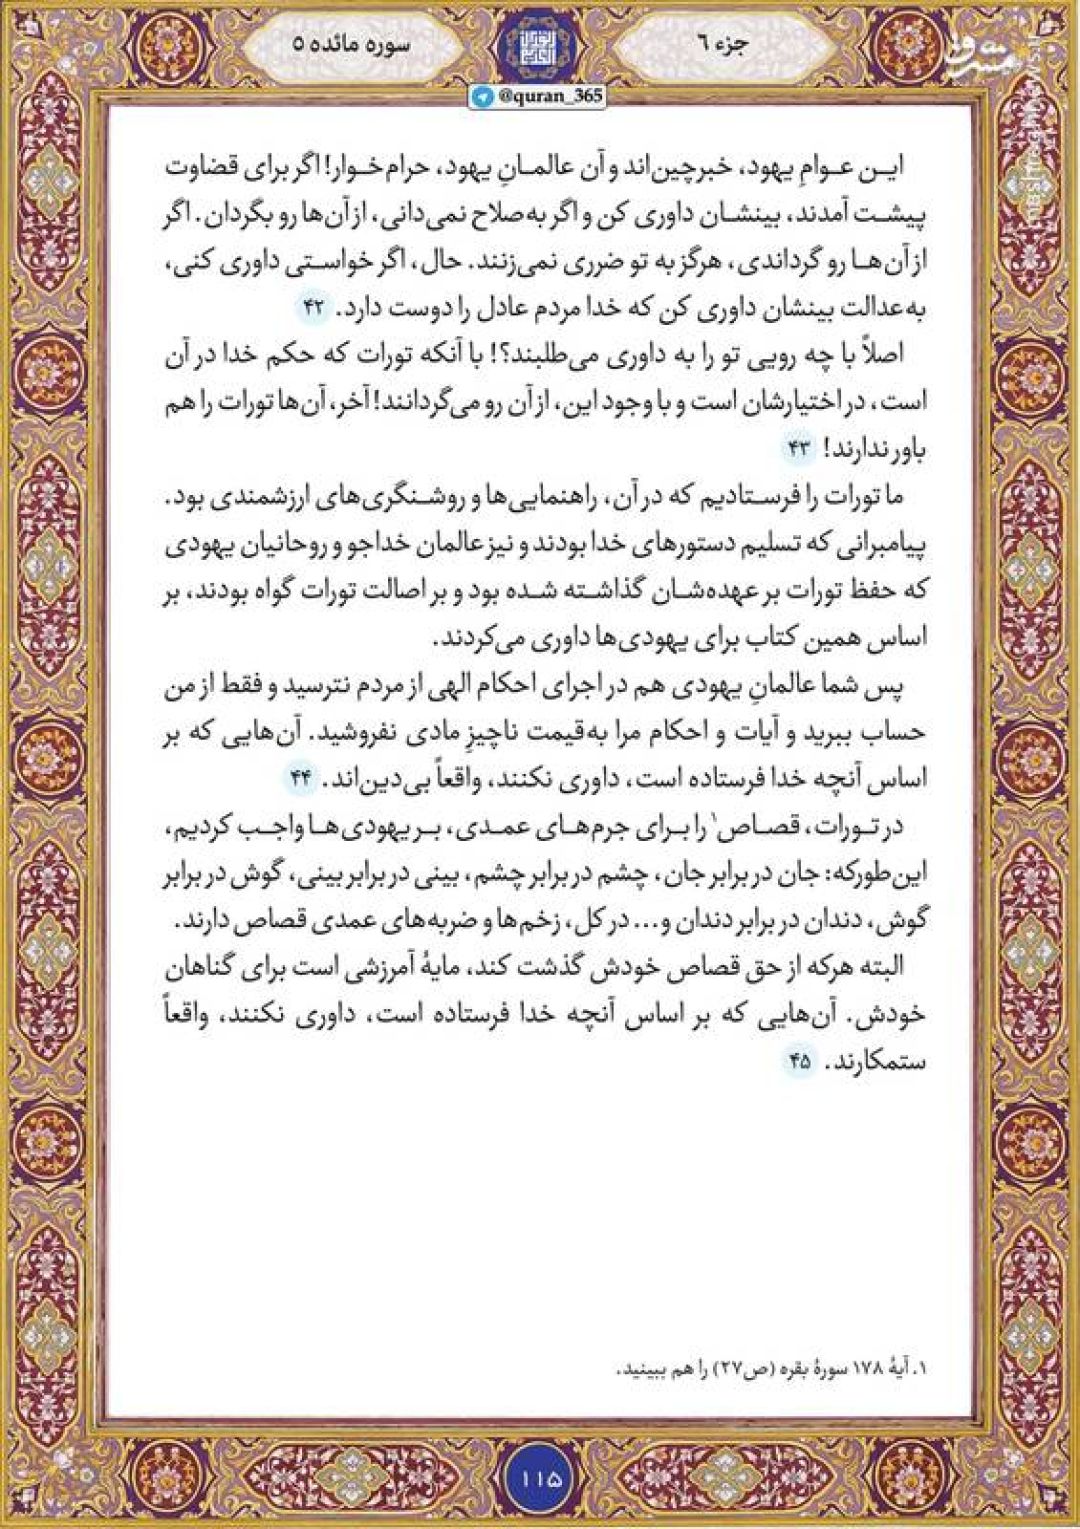 جزء ۶
سوره مائده ۵
@quran_365
مشرق
این عوامِ یهود، خبرچین‌اند و آن عالمانِ یهود، حرام‌خوار! اگر برای قضاوت
پیشت آمدند، بینشان داوری کن و اگر به‌صلاح نمی‌دانی، از آن‌ها رو بگردان. اگر
از آن‌ها رو گرداندی، هرگز به تو ضرری نمی‌زنند. حال، اگر خواستی داوری کنی،
به‌عدالت بینشان داوری کن که خدا مردم عادل را دوست دارد. ۴۲
اصلاً با چه رویی تو را به داوری می‌طلبند؟! با آنکه تورات که حکم خدا در آن
است، در اختیارشان است و با وجود این، از آن رو می‌گردانند! آخر، آن‌ها تورات را هم
باور ندارند! ۴۳
ما تورات را فرستادیم که در آن، راهنمایی‌ها و روشنگری‌های ارزشمندی بود.
پیامبرانی که تسلیم دستورهای خدا بودند و نیز عالمان خداجو و روحانیان یهودی
که حفظ تورات بر عهده‌شان گذاشته شده بود و بر اصالت تورات گواه بودند، بر
اساس همین کتاب برای یهودی‌ها داوری می‌کردند.
پس شما عالمانِ یهودی هم در اجرای احکام الهی از مردم نترسید و فقط از من
حساب ببرید و آیات و احکام مرا به‌قیمت ناچیزِ مادی نفروشید. آن‌هایی که بر
اساس آنچه خدا فرستاده است، داوری نکنند، واقعاً بی‌دین‌اند. ۴۴
در تورات، قصاص۱ را برای جرم‌های عمدی، بر یهودی‌ها واجب کردیم،
این‌طورکه: جان در برابر جان، چشم در برابر چشم، بینی در برابر بینی، گوش در برابر
گوش، دندان در برابر دندان و... در کل، زخم‌ها و ضربه‌های عمدی قصاص دارند.
البته هرکه از حق قصاص خودش گذشت کند، مایۀ آمرزشی است برای گناهان
خودش. آن‌هایی که بر اساس آنچه خدا فرستاده است، داوری نکنند، واقعاً
ستمکارند. ۴۵
۱. آیۀ ۱۷۸ سورۀ بقره (ص۲۷) را هم ببینید.
۱۱۵